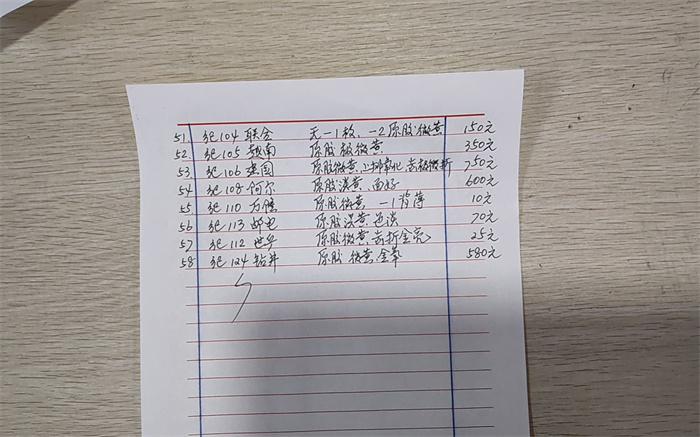 51. 纪104 联合 无-1枚、-2原胶微黄 150元
52. 纪105 越南 原胶极微黄 350元
53. 纪106 建国 原胶微黄、上排氧化、 750元
54. 纪108 阿尔 原胶淡黄、面好 600元
55. 纪110 万隆 原胶微黄 -1背薄 10元
56. 纪113 邮电 原胶淡黄色淡 70元
57. 纪112 世乒 原胶微黄 折金亮 25元
58. 纪124 钻井 原胶 微黄 580元